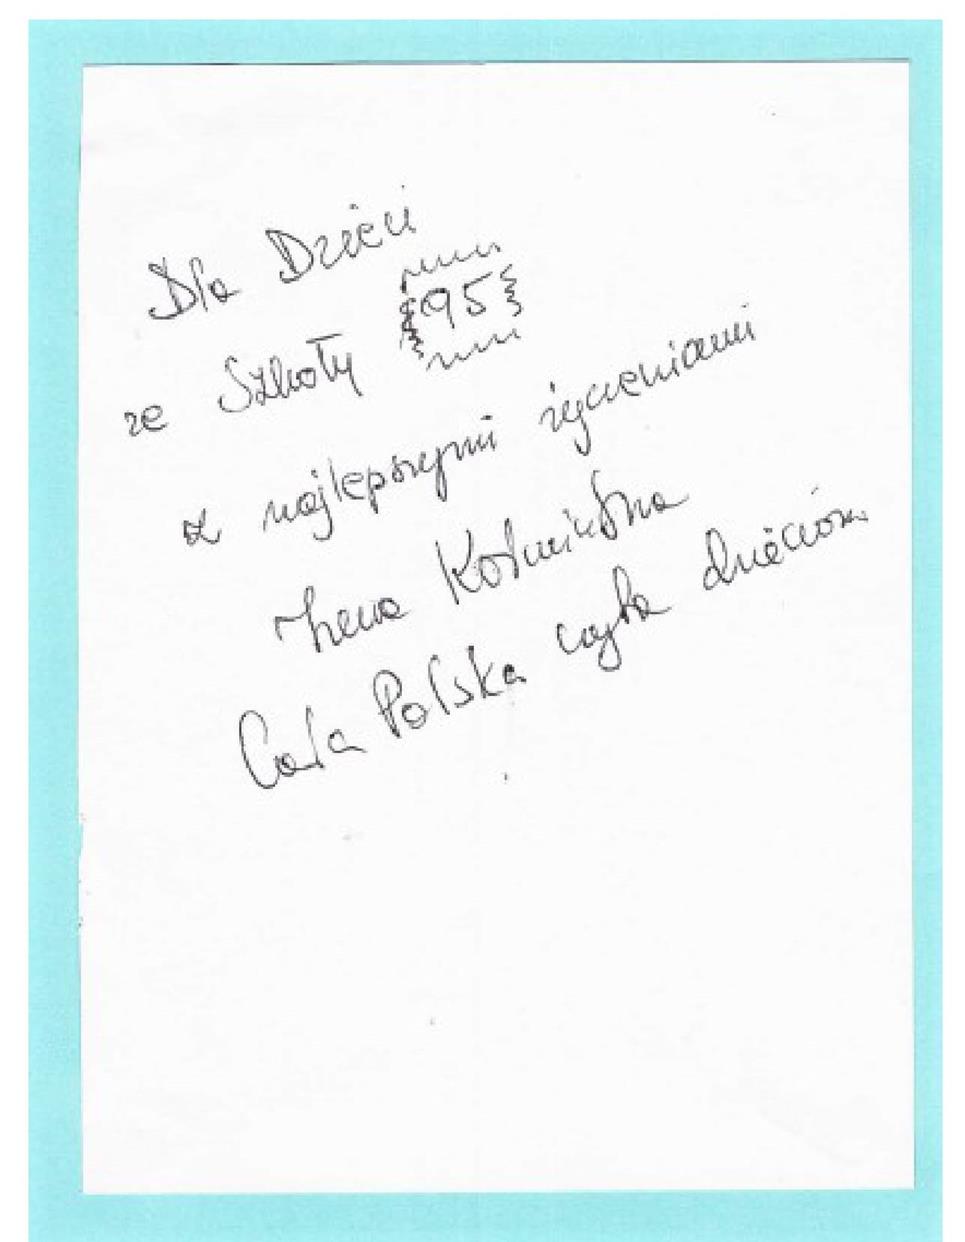 Dla Dzieci
ze Szkoły 95
z najlepszymi życzeniami
Irena Koźmińska
Cała Polska czyta dzieciom